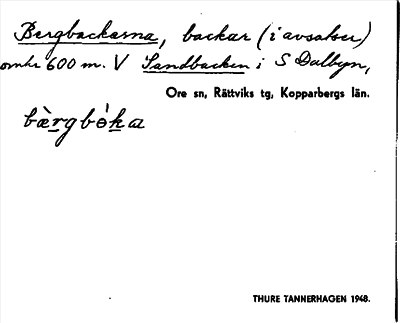 Bergbackarna, backar (i avsatser)
omkr 600 m. V Sandbacken i S Dalbyn,
Ore sn, Rättviks tg, Kopparbergs län.
THURE TANNERHAGEN 1948.